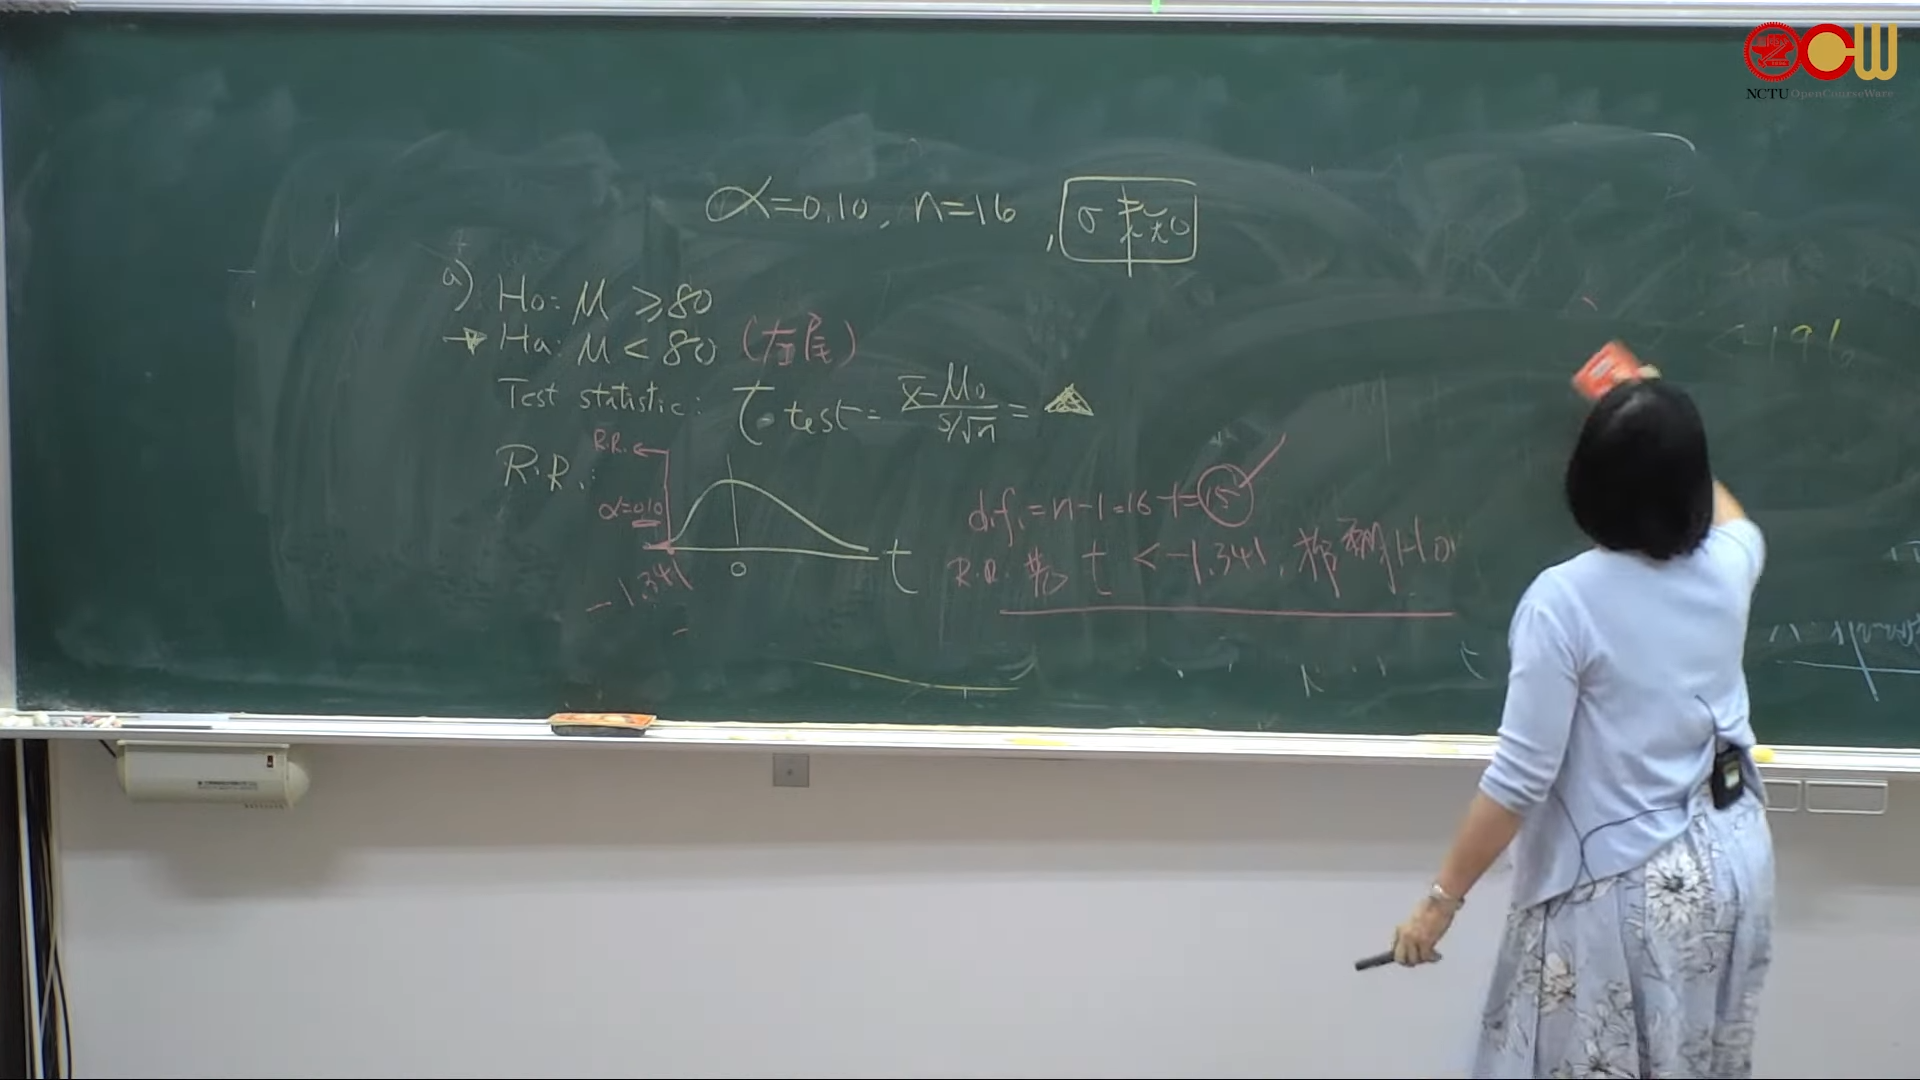 NCTU OpenCourseWare
α=0.10, n=16, σ未知
a) H₀: μ ≥ 80
Ha: μ < 80 (左尾)
Test statistic: T-test = (x̄-μ₀)/(s/√n) =
R.R.:
R.R. ←
α=0.10
-1.341
0
t
d.f. = n-1 = 16-1 = 15
R.R. 若 t < -1.341, 拒絕H₀
< -1.96